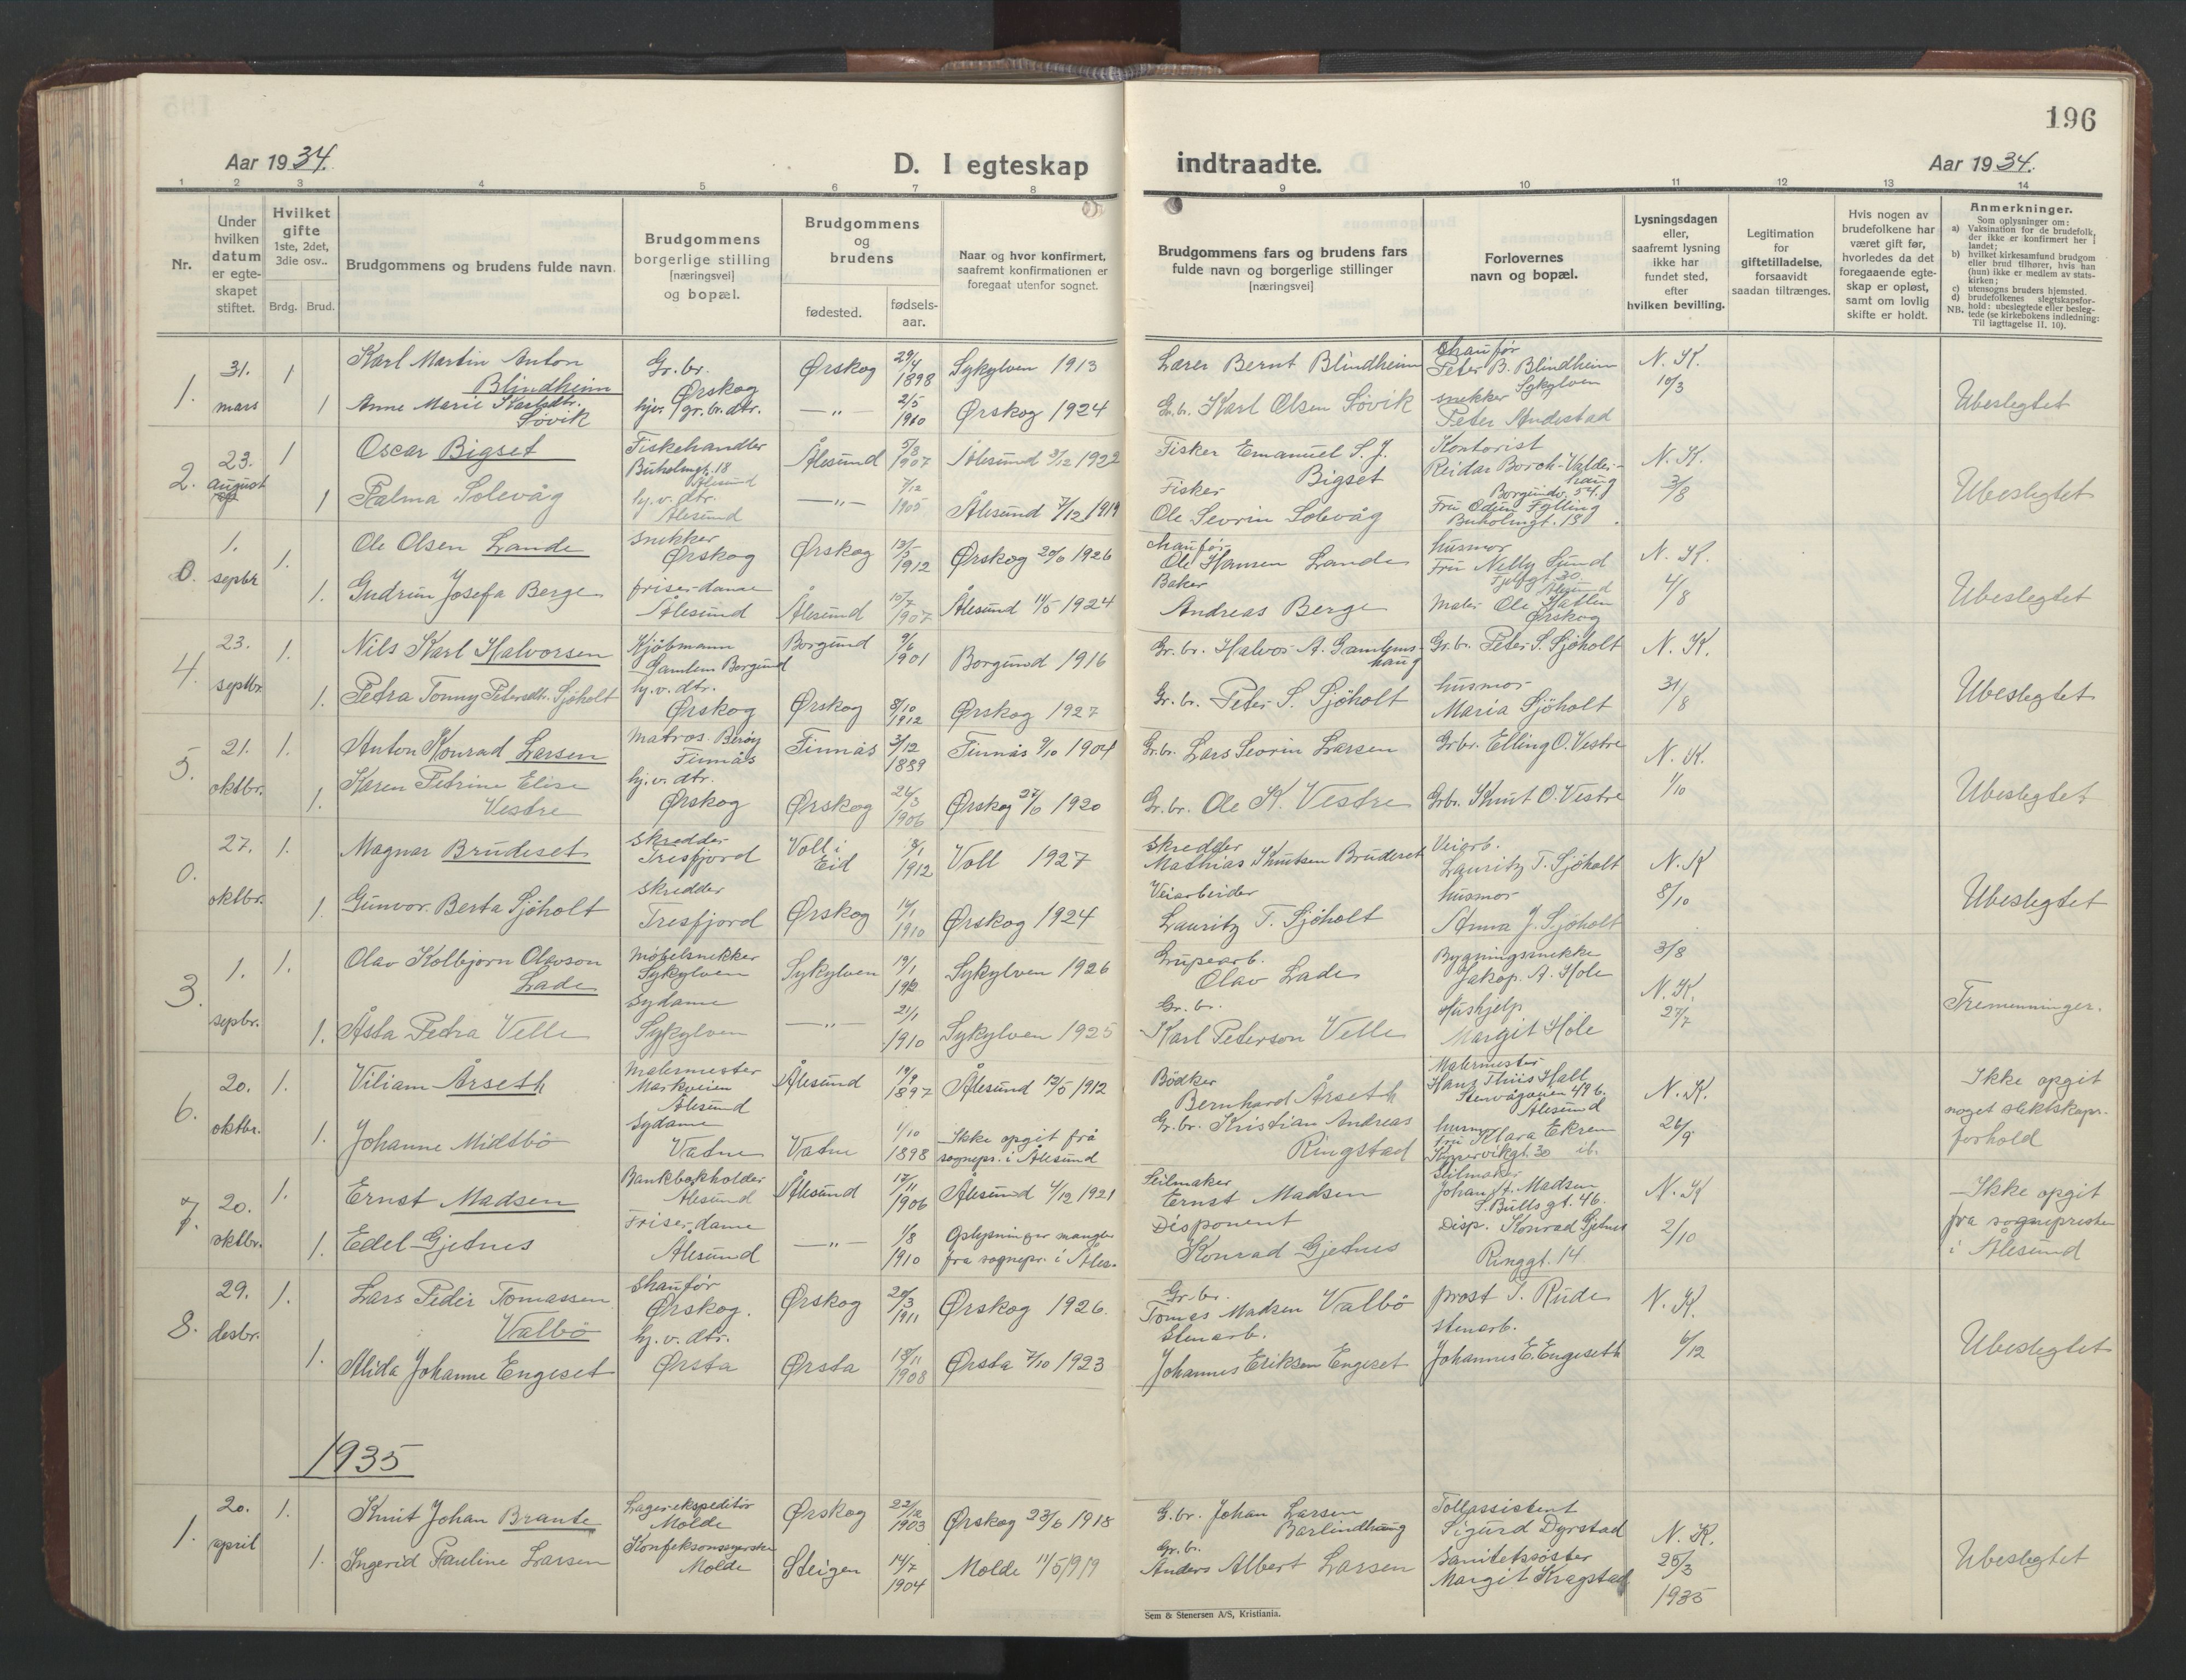 196
Aar 1934.
D. I egteskap indtraadte.
Aar 1934.
1 2 3 4 5 6 7 8 9 10 11 12 13 14
Nr.
Under hvilken datum er egteskapet stiftet.
Hvilket gifte 1ste, 2det, 3die osv..
Brdg. Brud.
Brudgommens og brudens fulde navn.
Brudgommens borgerlige stilling [næringsvei] og bopæl.
Brudgommens og brudens
fødested.
fødsels-aar.
Naar og hvor konfirmert, saafremt konfirmationen er foregaat utenfor sognet.
Brudgommens fars og brudens fars fulde navn og borgerlige stillinger [næringsvei]
Forlovernes navn og bopæl.
Lysningsdagen eller, saafremt lysning ikke har fundet sted, efter hvilken bevilling.
Legitimation for giftetilladelse, forsaavidt saadan tiltrænges.
Hvis nogen av brudefolkene har været gift før, hvorledes da det foregaaende egteskap er opløst, samt om lovlig skifte er holdt.
Anmerkninger.
Som oplysninger om:
a) Vaksination for de brudefolk, der ikke er konfirmert her i landet;
b) hvilket kirkesamfund brudgom eller brud tilhører, hvis han (hun) ikke er medlem av statskirken;
c) utensogns bruders hjemsted.
d) brudefolkenes slegtskapsforhold: ubeslegtede eller beslegtede (se kirkebokens indledning: Til iagttagelse II. 10).
NB.
1. 31. mars 1 Karl Martin Anton Blindheim Gr. br. Ørskog Ørskog 29/4 1898 Sykylven 1913 Lærer Bernt Blindheim Chaufør Peter B. Blindheim Sykylven N. K. 10/3 Ubeslegtet
1 Anne Marie Karlsdtr. Løvik hjv. gr. br. dtr. —"— 2/5 1900 Ørskog 1924 Gr. br. Karl Olsen Løvik snekker Peter Andestad
2. 23. august 1 Oscar Bigset Fiskehandler Buholmgt. 18 Ålesund Ålesund 5/3 1907 Ålesund 3/12 1922 Fisker Emanuel S. J. Bigset Kontorist Reidar Borch-Valderhaug Borgundv. 54. N. K. 3/8 Ubeslegtet
1 Palma Solevåg hj. v. dtr. Ålesund —"— 7/12 1905 Ålesund 7/12 1919 Fisker Ole Sevrin Solevåg Fru Fylling Buholmgt. 18.
0. 1. septbr 1. Ole Olsen Lande snekker Ørskog Ørskog 13/5 1912 Ørskog 20/6 1926 chaufør Ole Hansen Lande husmor Fru Nelly Lund Ålesund N. K. 4/8 Ubeslegtet
1. Gudrun Josefa Berge friserdame Ålesund Ålesund 10/7 1907 Ålesund 11/5 1924 Baker Andreas Berge Maler Ole Hatlen Ørskog
4. 23. septbr. 1. Nils Karl Halvorsen Kjøbmann Gamlem Borgund Borgund 9/6 1901 Borgund 1916 Gr. br. Halvor A. Gamlemshaug Gr. br. Peter S. Sjøholt N. K. 31/8 Ubeslegtet
1. Petra Tomny Petersdtr. Sjøholt hj. v. dtr. Ørskog Ørskog 8/10 1912 Ørskog 1927 Gr. br. Peter S. Sjøholt husmor Maria Sjøholt
5. 21. oktbr. 1. Anton Konrad Larsen matros. Finnås Finnås 3/12 1889 Finnås 9/10 1904 Gr. br. Lars Sevrin Larsen Gr. br. Elling O. Vestre N. K. 1/10 Ubeslegtet
1. Karen Petrine Elise Vestre hj. v. dtr. Ørskog Ørskog 26/3 1906 Ørskog 27/6 1920 Gr. br. Ole K. Vestre Grbr. Knut O. Vestre
0. 27. oktbr. 1. Magnar Brudeset skredder Tresfjord Voll i Eid 1912 Voll 1927 skredder Mathias Knutsen Brudeset Veiarb. Lauritz T. Sjøholt N. K 8/10 Ubeslegtet
1. Gunvor Berta Sjøholt skredder Tresfjord Ørskog 14/1 1910 Ørskog 1924 Veiarbeider Lauritz T. Sjøholt husmor Anna J. Sjøholt
3. 1. sepbr. 1. Olav Kolbjørn Olavson Lade møbelsnekker Sykylven Sykylven 19/1 1912 Sykylven 1926 Olav Lade Bygningssnekke Jakop. A. Hole 3/8 N. K. 27/7 Tremenninger.
1. Åsta Petra Velle sydame Sykylven —"— 21/1 1910 Sykylven 1925 Gr. br. Karl Peterson Velle Hushjelp Margit Hole
6. 20. oktbr. 1. Viliam Årseth malermester Markveien Ålesund Ålesund 19/9 1897 Ålesund 12/5 1912 Bødker Bernhard Årseth Malermester Hans Thiis Hall Stenvågveien 49 b. Ålesund N. K. 26/9 Ikke opgit noget slektskapsforhold
1. Johanne Midtbø sydame Vatne Vatne 1/10 1898 Ikke opgit frå sognepr. i Ålesund Gr. br. Kristian Andreas Ringstad husmor Fru Klara Ekren Kippervikgt. 30 ib.
7. 20. oktbr. 1. Ernst Madsen Bankbokholder Ålesund Ålesund 17/11 1906 Ålesund 4/12 1921 Seilmaker Ernst Madsen Seilmaker Johan A. Madsen S. Bullsgt. 46. N. K 2/10 Ikke opgit fra sognepresten i Ålesund
1. Edel Gjetnes Friserdame Ålesund —"— 1/8 1910 Oplysninger mangler fra sognepr. i Åles. Disponent Konrad Gjetnes Disp. Konrad Gjetnes Ringgt. 14
8. 29. desbr. 1. Lars Peder Tomassen Valbø shaufør Ørskog. Ørskog 20/3 1911 Ørskog 1926. Gr. br. Tomas Madsen Valbø prost S. Rude N. K. 6/12 Ubeslegtet
1. Alida Johanne Engeset hj. v. dtr. Ørsta Ørsta 18/11 1908 Ørsta 7/10 1923 Stenarb. Johannes Eriksen Engeset stenarb. Johannes E. Engeseth
1935
1. 20. april 1. Knut Johan Brante Lagerekspeditør Molde Ørskog 22/12 1903 Ørskog 23/6 1918 G. br. Johan Larsen Barlindhaug Tollassistent Sigurd Dyrstad N. K. 25/3 1935 Ubeslegtet
1. Ingerid Pauline Larsen Konfeksonssyerske Molde Steigen 14/7 1904 Molde 11/5 1919 Gr. br. Anders Albert Larsen Sanitetssøster Margit Kragstad
Sem & Stenersen A/S, Kristiania.